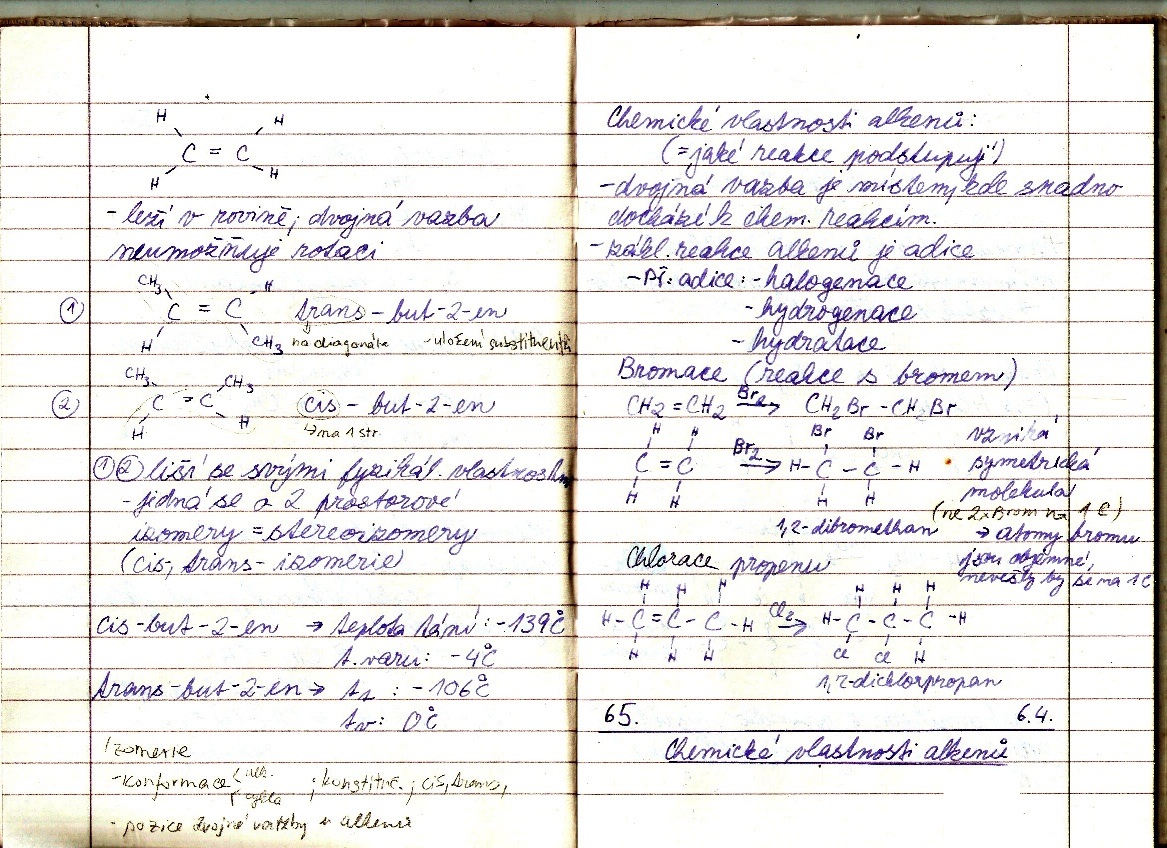 H H
C = C
H H
- leží v rovině; dvojná vazba
neumožňuje rotaci
① CH₃ H
C = C trans-but-2-en
H CH₃ na diagonále - uložení substituentů
② CH₃ CH₃
C = C cis-but-2-en
H H ↳ na 1 str.
①② liší se svými fyzikál. vlastnostm
- jedná se o 2 prostorové
izomery = stereoizomery
(cis, trans- izomerie)
cis-but-2-en → teplota tání: -139°C
t. varu: -4°C
trans-but-2-en → tt : -106°C
tv: 0°C
Izomerie
- konformace ; konstituč. ; cis, trans,
- pozice dvojné vazby u alkenů
Chemické vlastnosti alkenů:
(= jaké reakce podstupují)
- dvojná vazba je místem, kde snadno
dochází k chem. reakcím.
- zákl. reakce alkenů je adice
- Př: adice: - halogenace
- hydrogenace
- hydratace
Bromace (reakce s bromem)
CH2 = CH2 Br2→ CH2Br - CH2Br
H H Br Br vzniká
C = C Br2→ H- C - C - H symetrická
H H H H molekula
(ne 2x Brom na 1 C)
1,2-dibromethan → atomy bromu
jsou objemné,
nevešly by se na 1C
Chlorace propenu
H H H H H H
H- C = C - C - H Cl2→ H- C - C - C - H
H H H Cl Cl H
1,2-dichlorpropan
65. 6.4.
Chemické vlastnosti alkenů